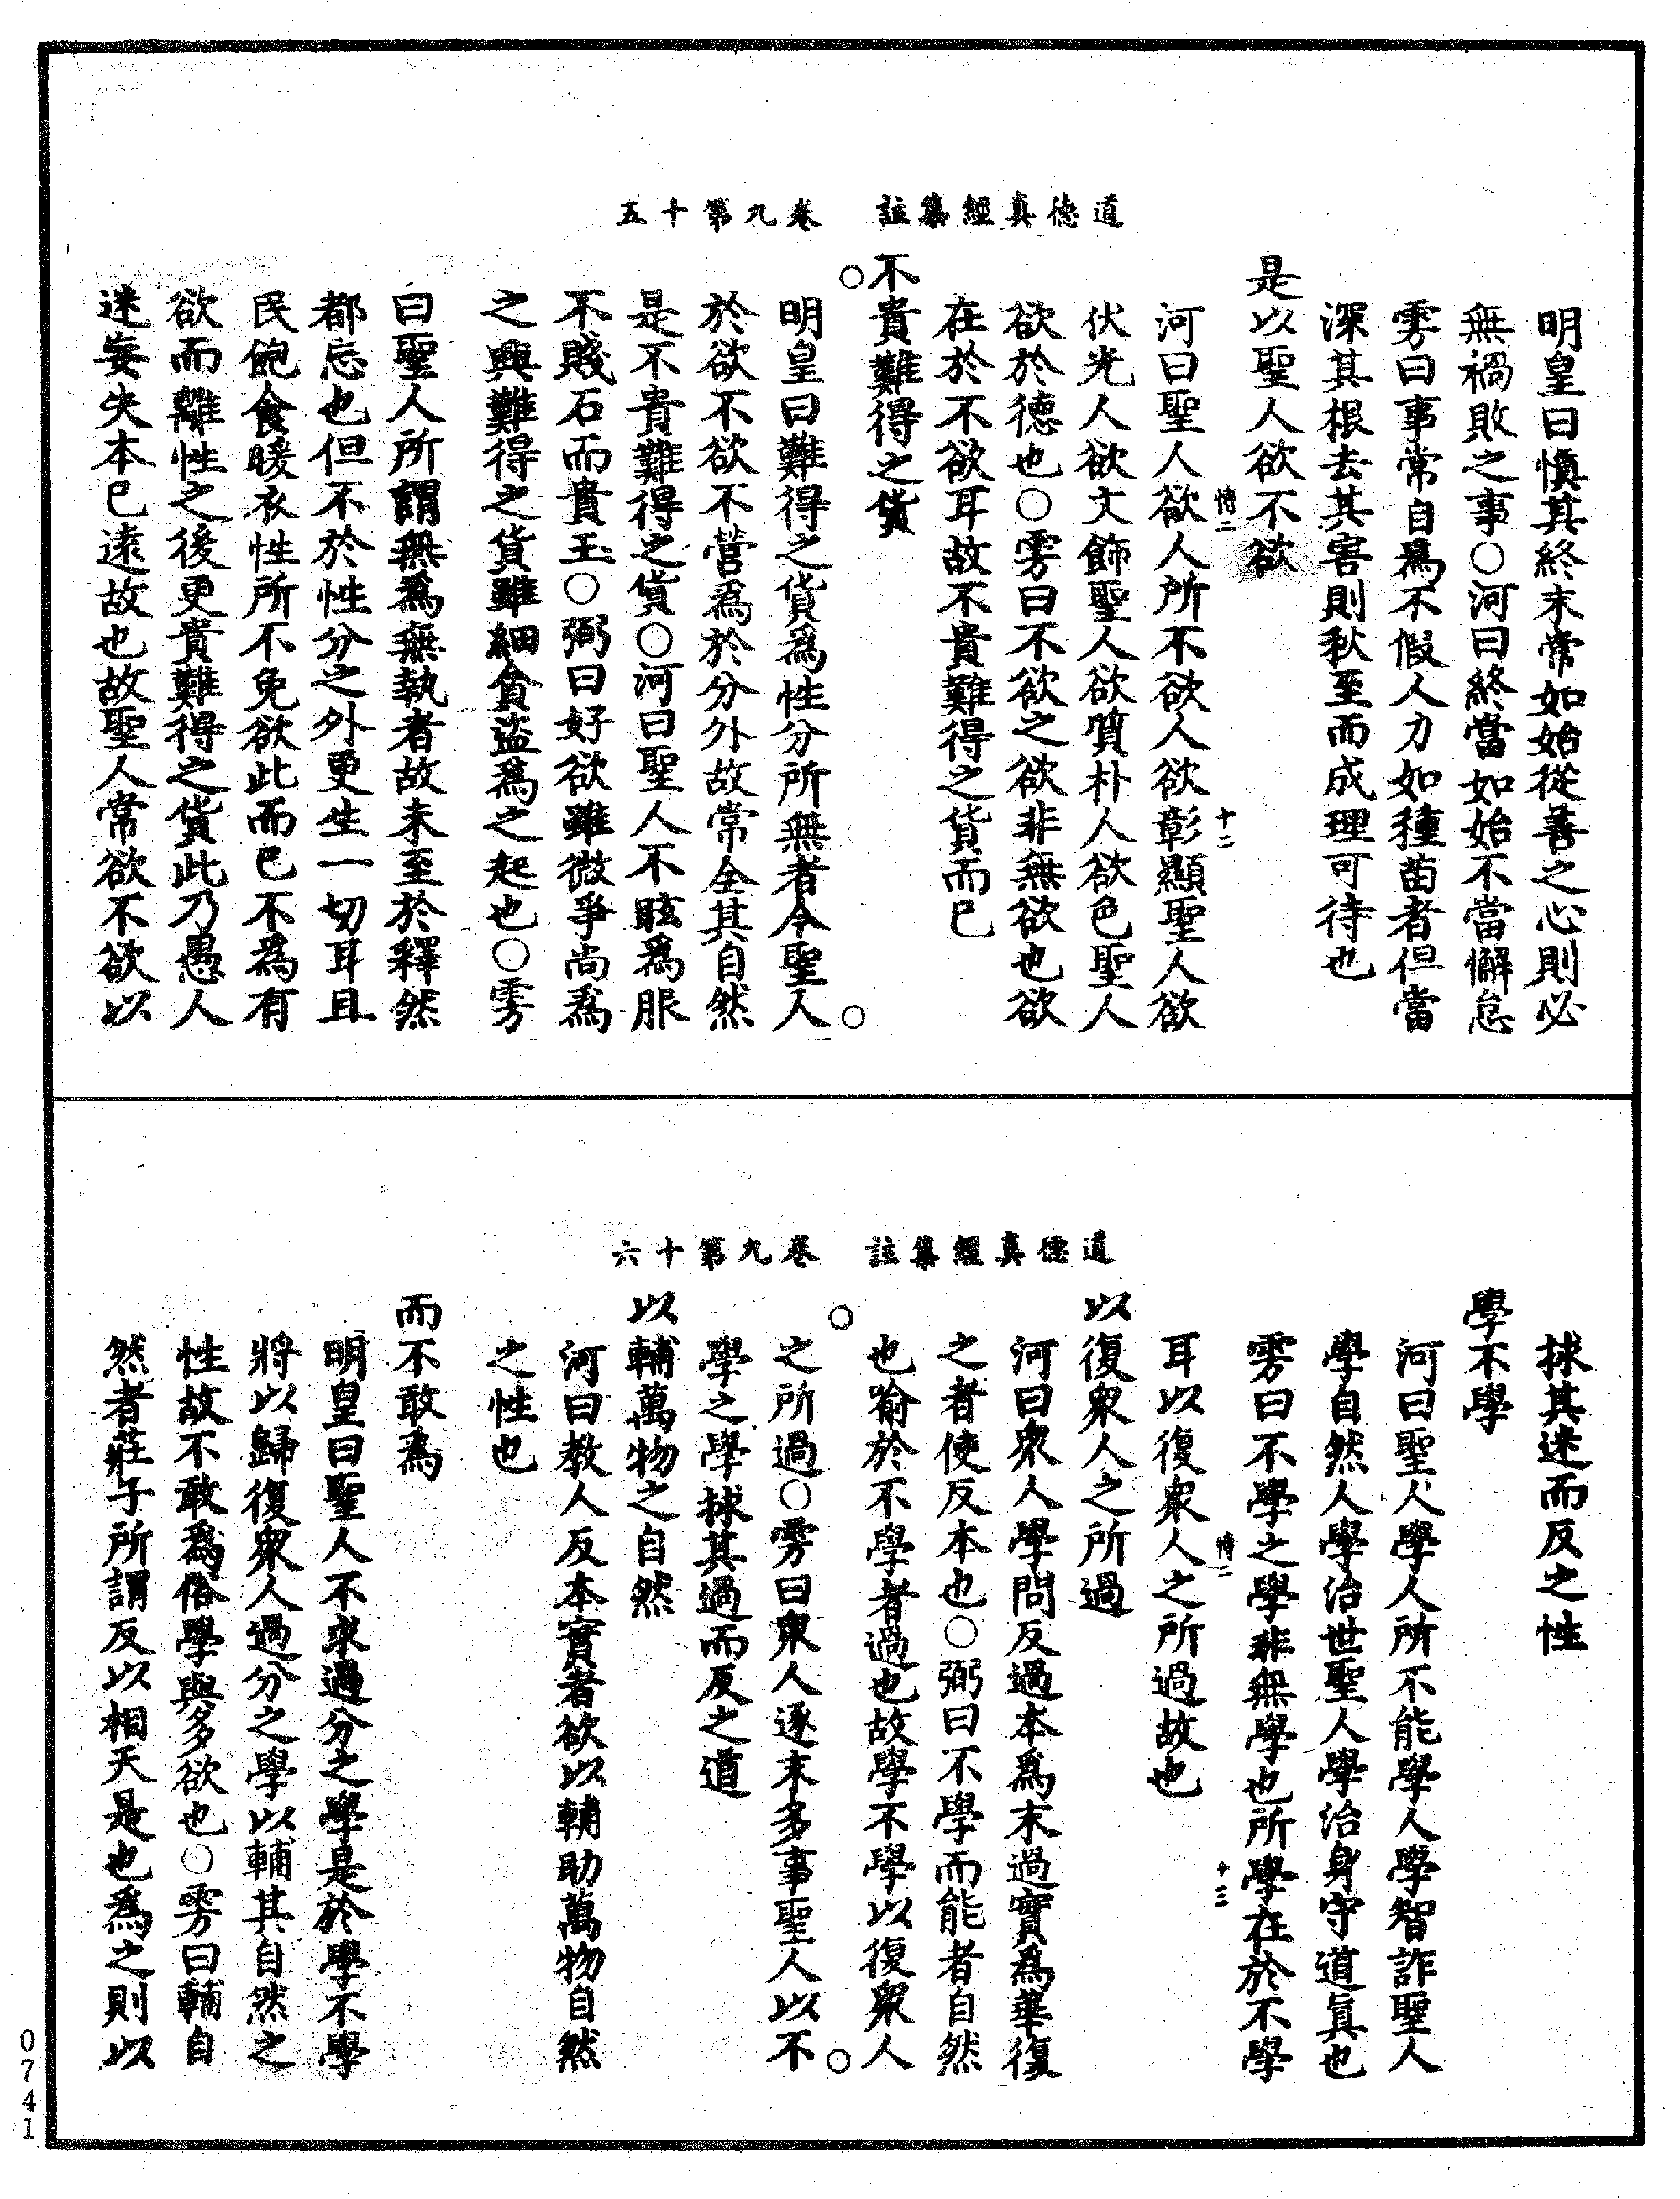 道德真經集註　卷九第十五
明皇曰慎其終末常如始從善之心則必
無禍敗之事○河曰終當如始不當懈怠
雱曰事常自爲不假人力如種苗者但當
深其根去其害則秋至而成理可待也
是以聖人欲不欲
恃二　十二
河曰聖人欲人所不欲人欲彰顯聖人欲
伏光人欲文飾聖人欲質朴人欲色聖人
欲於德也○雱曰不欲之欲非無欲也欲
在於不欲耳故不貴難得之貨而已
不貴難得之貨
明皇曰難得之貨爲性分所無者今聖人
於欲不欲不營爲於分外故常全其自然
是不貴難得之貨○河曰聖人不眩爲服
不賤石而貴玉○弼曰好欲雖微爭尚爲
之興難得之貨雖細貪盜爲之起也○雱
曰聖人所謂無爲無執者故未至於釋然
都忘也但不於性分之外更生一切耳且
民飽食暖衣性所不免欲此而已不爲有
欲而離性之後更貴難得之貨此乃愚人
迷妄失本已遠故也故聖人常欲不欲以
道德真經集註　卷九第十六
捄其迷而反之性
學不學
河曰聖人學人所不能學人學智詐聖人
學自然人學治世聖人學治身守道眞也
雱曰不學之學非無學也所學在於不學
恃二　十三
耳以復衆人之所過故也
以復衆人之所過
河曰衆人學問反過本爲末過實爲華復
之者使反本也○弼曰不學而能者自然
也喻於不學者過也故學不學以復衆人
之所過○雱曰衆人逐末多事聖人以不
學之學捄其過而反之道
以輔萬物之自然
河曰教人反本實者欲以輔助萬物自然
之性也
而不敢爲
明皇曰聖人不求過分之學是於學不學
將以歸復衆人過分之學以輔其自然之
性故不敢爲俗學與多欲也○雱曰輔自
然者莊子所謂反以相天是也爲之則以
0741